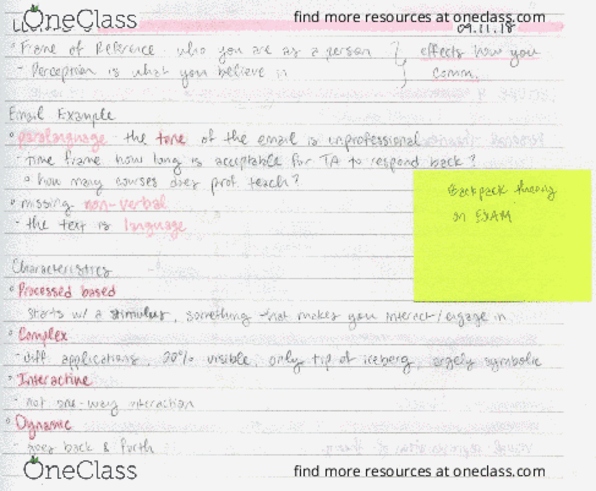 OneClass
find more resources at oneclass.com
09.11.18
° Frame of Reference - who you are as a person } effects how you
- Perception is what you believe in } comm.
Email Example
° paralanguage - the tone of the email is unprofessional
- time frame how long is acceptable for TA to respond back?
° how many courses does prof. teach?
° missing non-verbal
- the text is language
Backpack theory
on EXAM
Characteristics
° Processed based
starts w/ a stimulus, something that makes you interact/engage in
° Complex
- diff. applications, 20% visible, only tip of iceberg, largely symbolic
° Interactive
- not one-way interaction
° Dynamic
- goes back & forth
OneClass
find more resources at oneclass.com